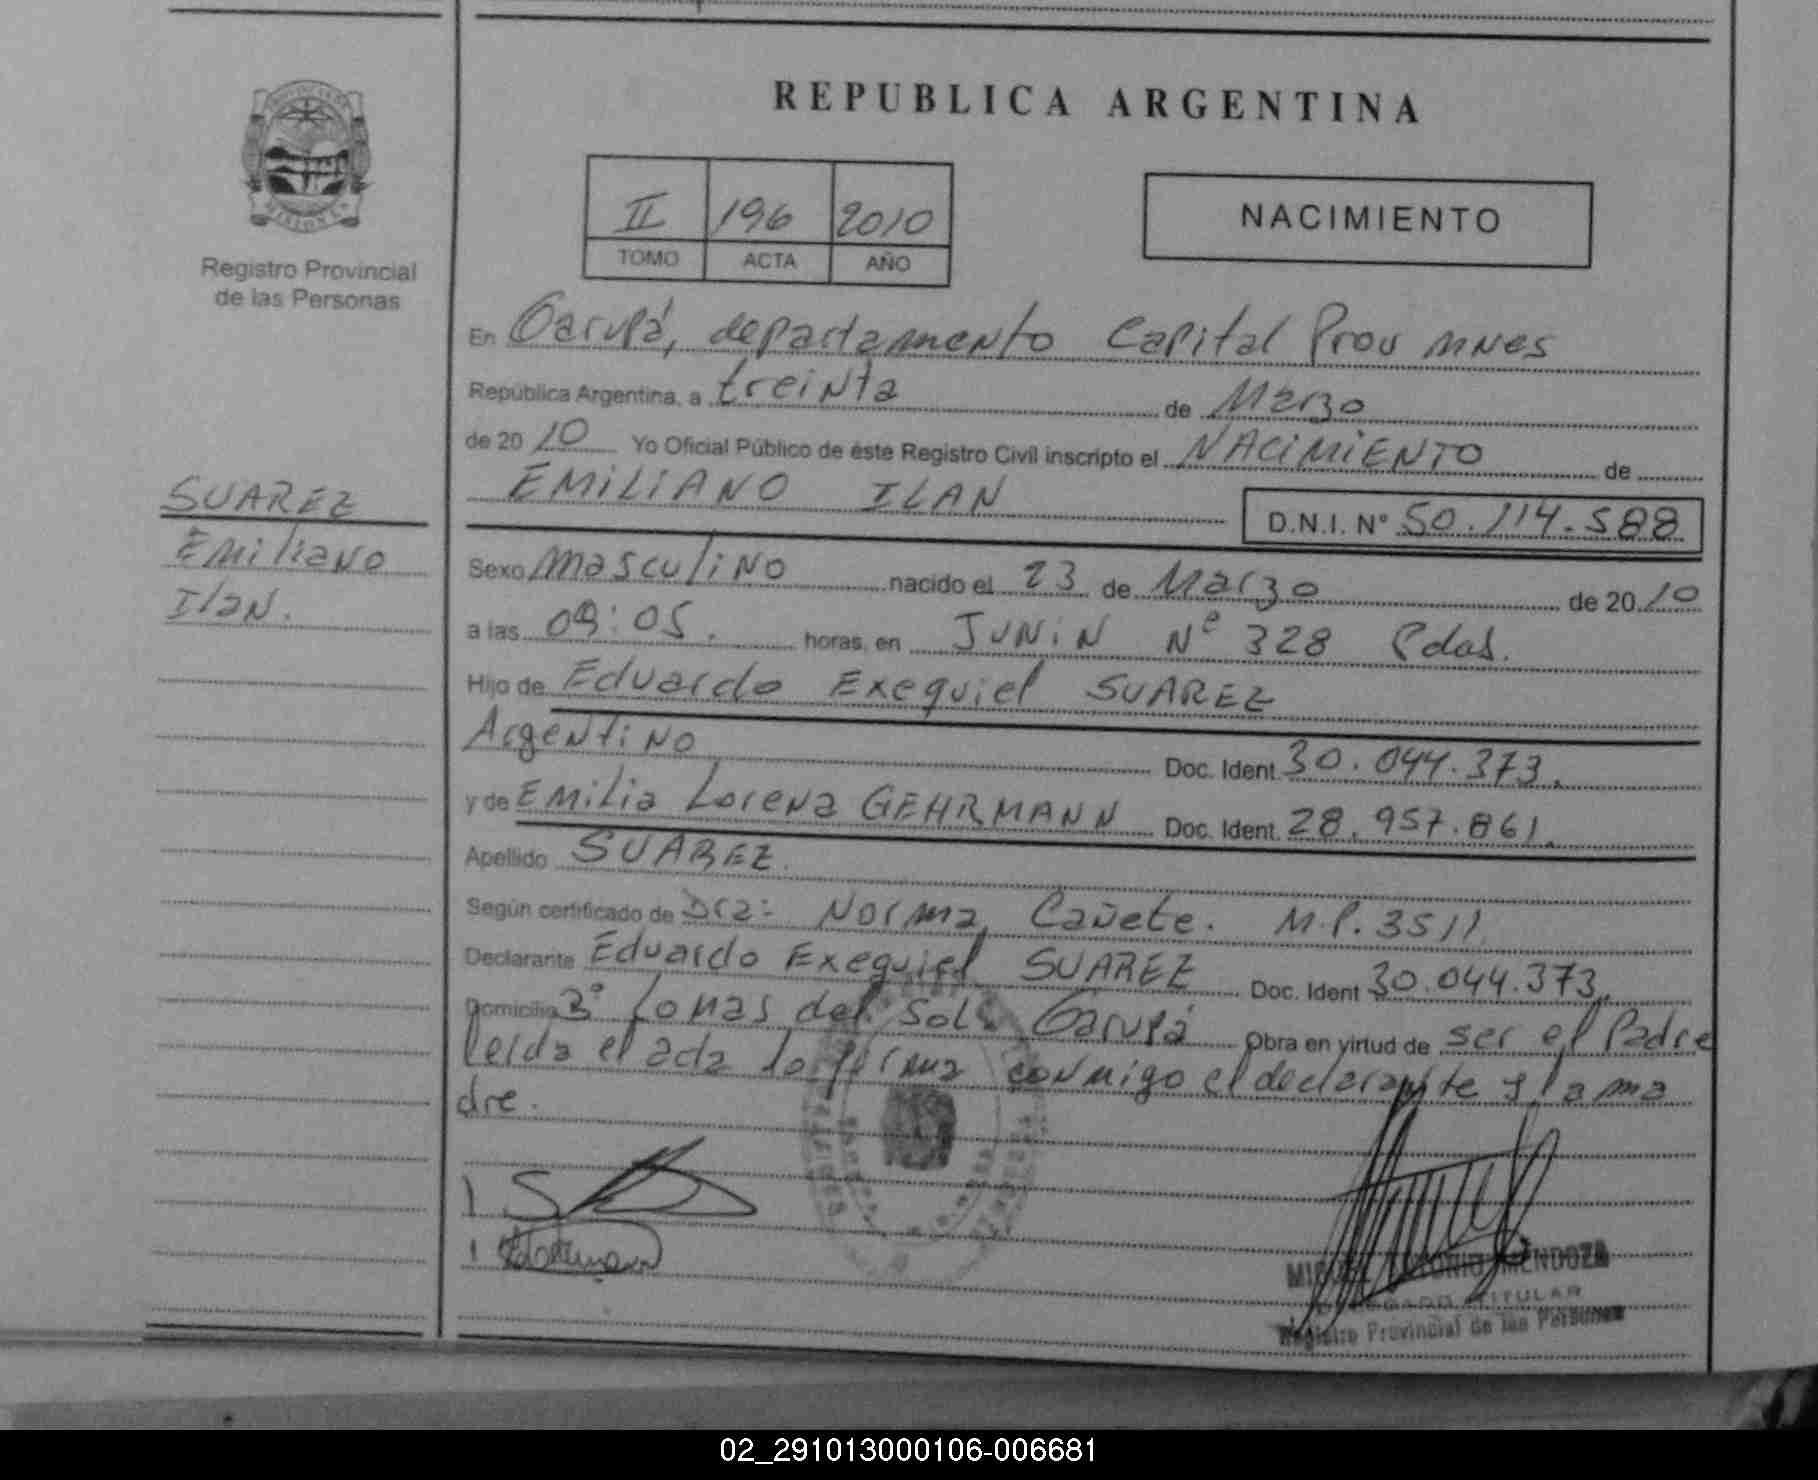 PROVINCIA DE
MISIONES
Registro Provincial
de las Personas
SUAREZ
Emiliano
Ilan.
REPUBLICA ARGENTINA
II 196 2010
TOMO ACTA AÑO
NACIMIENTO
En Garupá, departamento Capital Prov mnes
República Argentina, a treinta de Marzo
de 2010 Yo Oficial Público de éste Registro Civil inscripto el NACIMIENTO de
EMILIANO ILAN D.N.I. N° 50.114.588
Sexo masculino nacido el 23 de Marzo de 2010
a las 09:05. horas, en JUNIN N° 328 Pdas.
Hijo de Eduardo Exequiel SUAREZ
Argentino Doc. Ident. 30.044.373.
y de Emilia Lorena GEHRMANN Doc. Ident. 28.957.861.
Apellido SUAREZ.
Según certificado de Dra: Norma Cañete. M.P. 3511
Declarante Eduardo Exequiel SUAREZ Doc. Ident 30.044.373.
Domicilio B° Lomas del Sol. Garupá Obra en virtud de ser el Padre
leida el acta lo firma conmigo el declarante y la ma
dre.
MIGUEL ANTONIO MENDOZA
DELEGADO TITULAR
Registro Provincial de las Personas
02_291013000106-006681